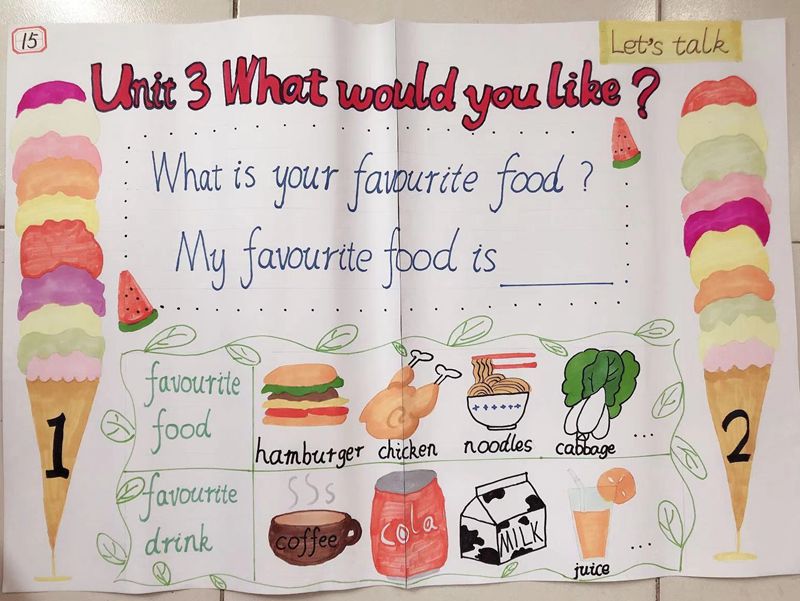 15
Let's talk
Unit 3 What would you like?
What is your favourite food?
My favourite food is ______
1
2
favourite
food
hamburger chicken noodles cabbage ...
favourite
drink
coffee cola MILK juice ...